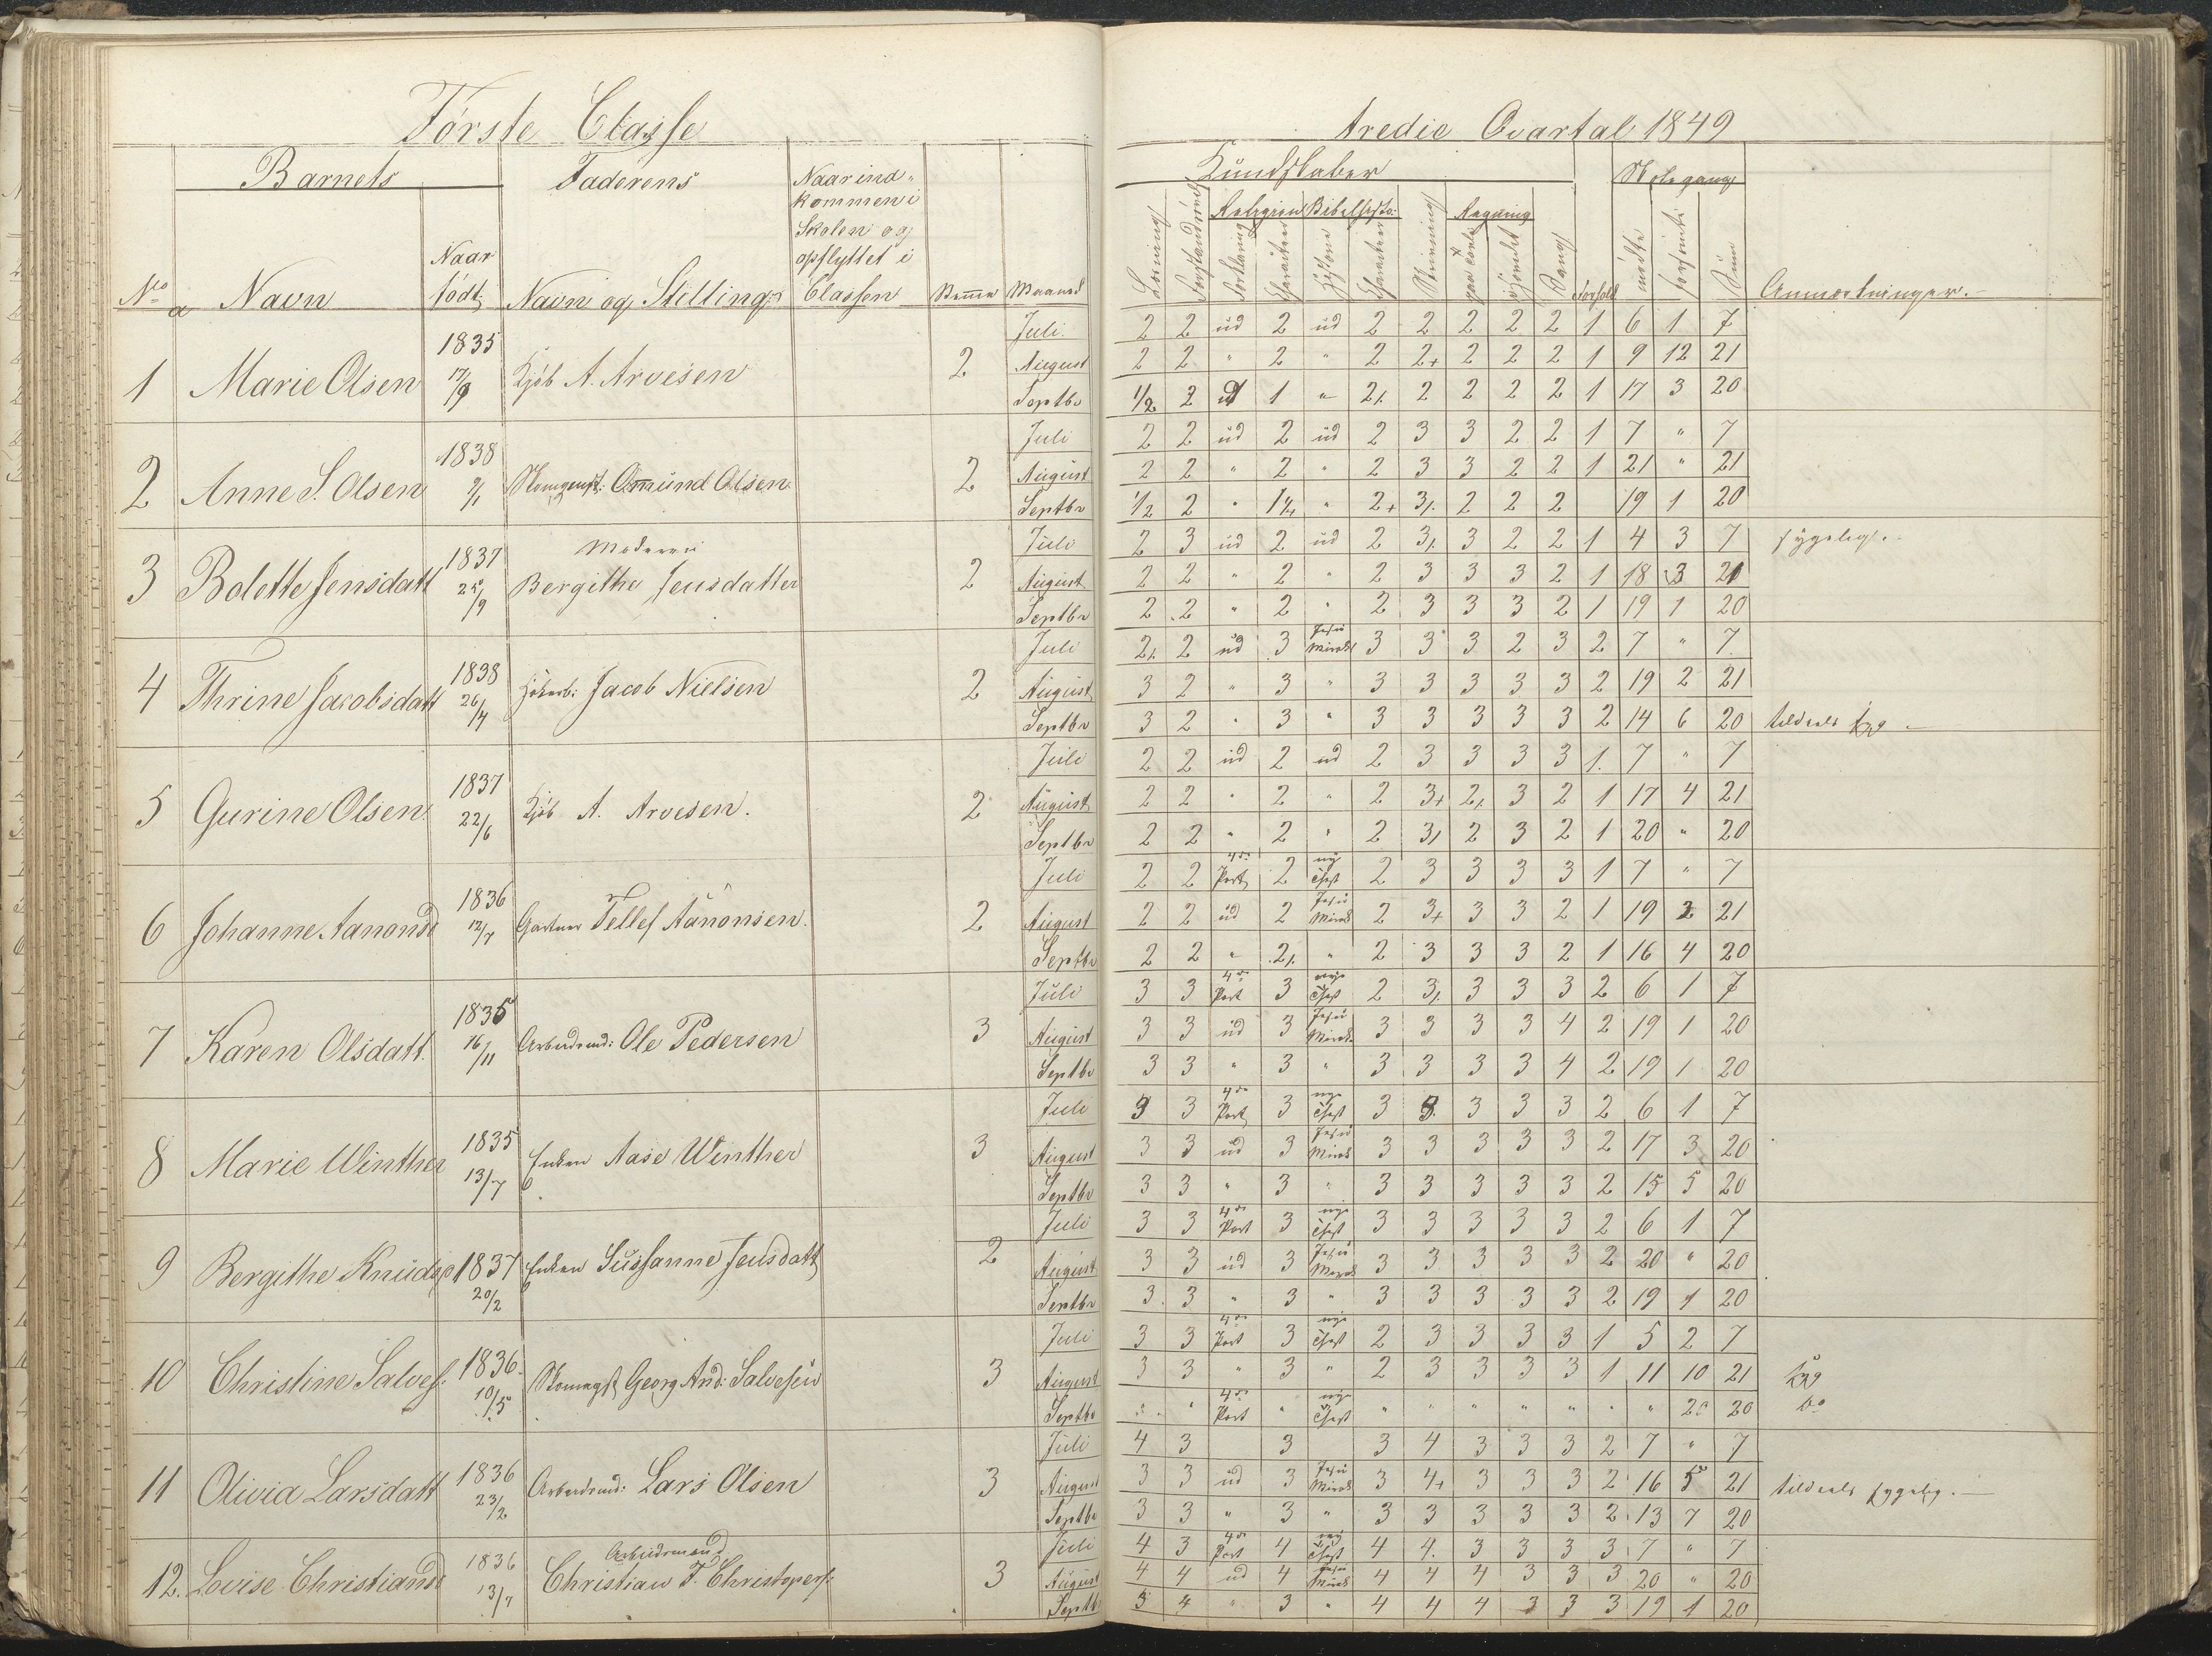 Første Classe
tredie Qvartal 1849
Barnets
Faderens
Naar ind-
kommen i
Skolen og
opflyttet i
Classen
No Navn Naar født Navn og Stilling Maaned
Kundskaber
Skolegang
Religion Bibelhisto: Regning
Læsning Forklaring Sang Forhold mødte forsømte Sum Anmærkninger.
1 Marie Olsen 1835 17/9 Kjøb A. Arvesen 2
Juli 2 2 ud 2 ud 2 2 2 2 2 1 6 1 7
August 2 2 " 2 " 2 2+ 2 2 2 1 9 12 21
Septbr 1/2 2 1 " 2 2 2 2 1 17 3 20
2 Anne S. Olsen 1838 9/1 Omund Olsen 2
Juli 2 2 ud 2 ud 2 3 3 2 2 1 7 " 7
August 2 2 " 2 " 2 3 3 2 2 1 21 " 21
Septbr 1/2 2 " " 2+ 2 2 2 19 1 20
3 Bolette Jensdatt 1837 25/9 Moderen Bergithe Jensdatter 2
Juli 2 3 ud 2 ud 2 3 2 2 1 4 3 7 sygelig.
August 2 2 " 2 " 2 3 3 3 2 1 18 3 21
Septbr 2 2 " 2 " 2 3 3 3 2 1 19 1 20
4 Thrine Jacobsdatt 1838 26/4 Jacob Nielsen 2
Juli 2 ud 3 Jesu Mirak 3 3 3 2 3 2 7 " 7
August 3 2 " 3 " 3 3 3 3 3 2 19 2 21
Septbr 3 2 " 3 " 3 3 3 3 3 2 14 6 20 tildeels syg
5 Gurine Olsen 1837 22/6 Kjøb A. Arvesen. 2
Juli 2 2 ud 2 ud 2 3 3 3 3 1. 7 " 7
August 2 2 " 2 " 2 3+ 3 2 1 17 4 21
Septbr 2 2 " 2 " 2 2 3 2 1 20 " 20
6 Johanne Aanonsd 1836 12/7 Gartner Tellef Aanonsen. 2
Juli 2 2 4de Part 2 2 3 3 3 3 1 7 " 7
August 2 2 ud 2 Jesu Mirak 2 3+ 3 3 2 1 19 2 21
Septbr 2 2 " " 2 3 3 3 2 1 16 4 20
7 Karen Olsdatt. 1835 16/11 Arbeidsmd: Ole Pedersen 3
Juli 3 3 4de Part 3 2 3 3 3 2 6 1 7
August 3 3 ud 3 Jesu Mirak 3 3 3 3 4 2 19 1 20
Septbr 3 3 " 3 " 3 3 3 3 4 2 19 1 20
8 Marie Winther 1835 13/7 Enken Aase Winther 3
Juli 3 3 4de Part 3 3 3 3 3 3 2 6 1 7
August 3 3 ud 3 Jesu Mirak 3 3 3 3 3 2 17 3 20
Septbr 3 3 " 3 " 3 3 3 3 3 2 15 5 20
9 Bergithe Knudsd 1837 20/2 Enken Sussanne Jensdatt 2
Juli 3 3 4de Part 3 3 3 3 3 3 2 6 1 7
August 3 3 ud 3 Jesu Mirak 3 3 3 3 3 2 20 " 20
Septbr 3 3 " 3 " 3 3 3 3 3 2 19 1 20
10 Christine Salves: 1836. 10/5 Georg And: Salvesen 3
Juli 3 3 4de Part 3 2 3 3 3 3 1 5 2 7
August 3 3 " 3 " 2 3 3 3 3 1 11 10 21 syg
Septbr " " 4de Part " " " " " " " " 20 20 do
11 Olivia Larsdatt 1836 23/2 Arbeidsmd: Lars Olsen 3
Juli 4 3 3 3 4 3 3 3 2 7 " 7
August 3 3 ud 3 Jesu Mirak 3 4+ 3 3 3 2 16 5 21 tildeels sygelig.
Septbr 3 3 " 3 " 3 3 3 3 3 2 13 7 20
12. Lovise Christiansd 1836 13/7 Arbeidsmand Christian F. Christopers: 3
Juli 4 3 4de Part 4 4 4. 3 3 3 3 7 " 7
August 4 4 ud 4 Jesu Mirak 4 4 4 3 3 3 20 " 20
Septbr 3 4 " 3 " 4 4 4 3 3 3 19 1 20